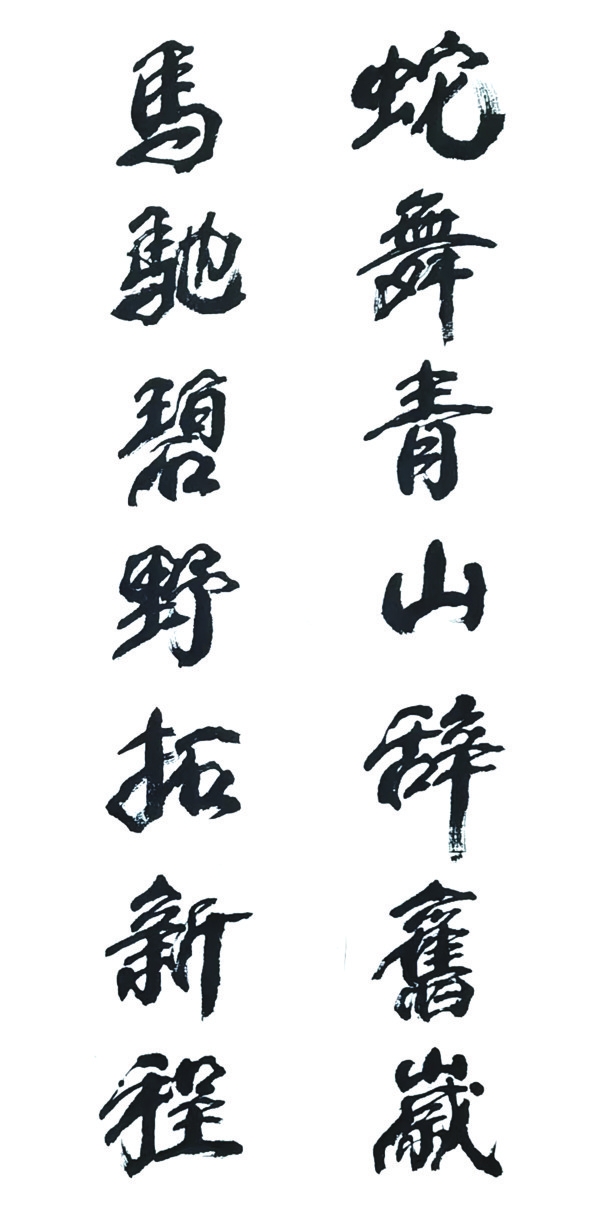 蛇舞青山辞舊歲
馬馳碧野拓新程